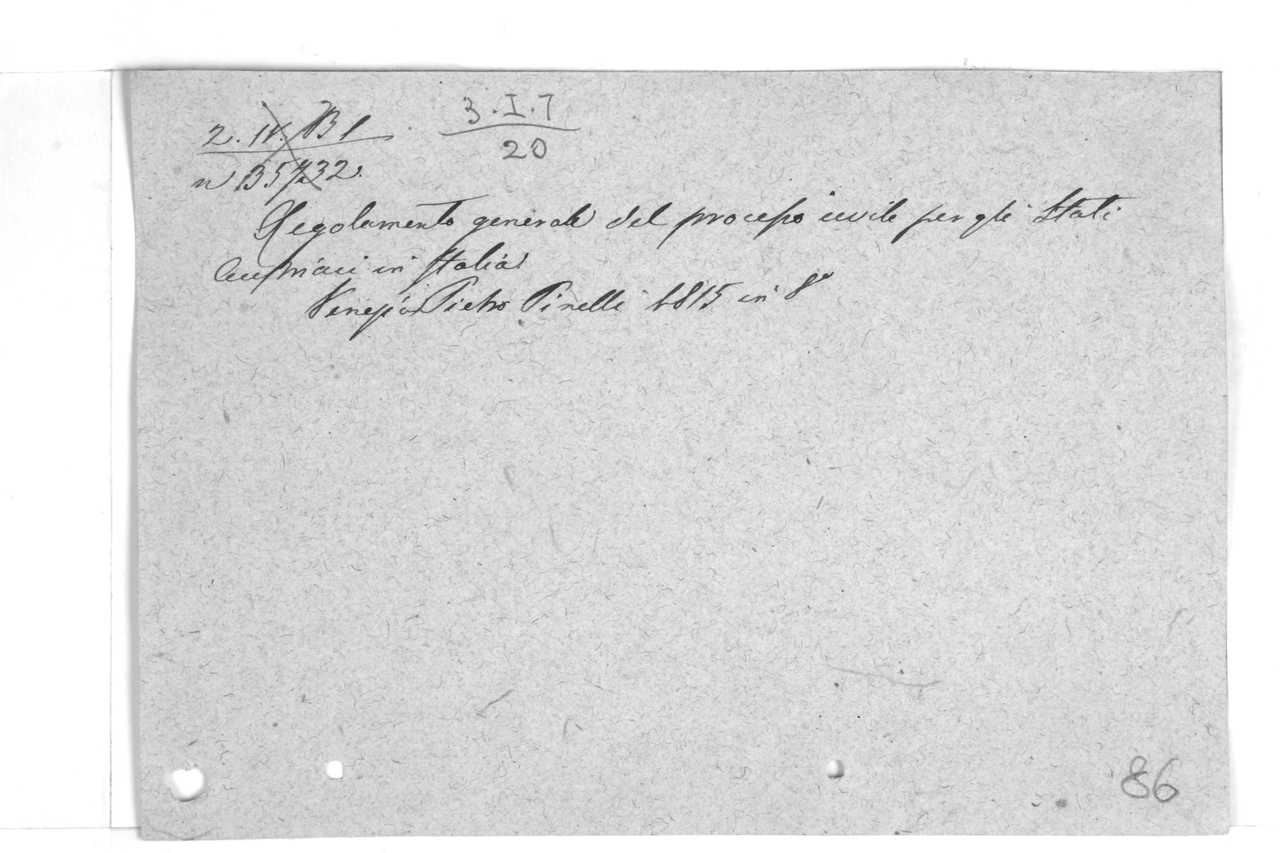 2. IV. B 1
3.I.7
20
n 135732.
Regolamento generale del processo civile per gli Stati
Austriaci in Italia
Venezia Pietro Pinelli 1815 in 8º
86